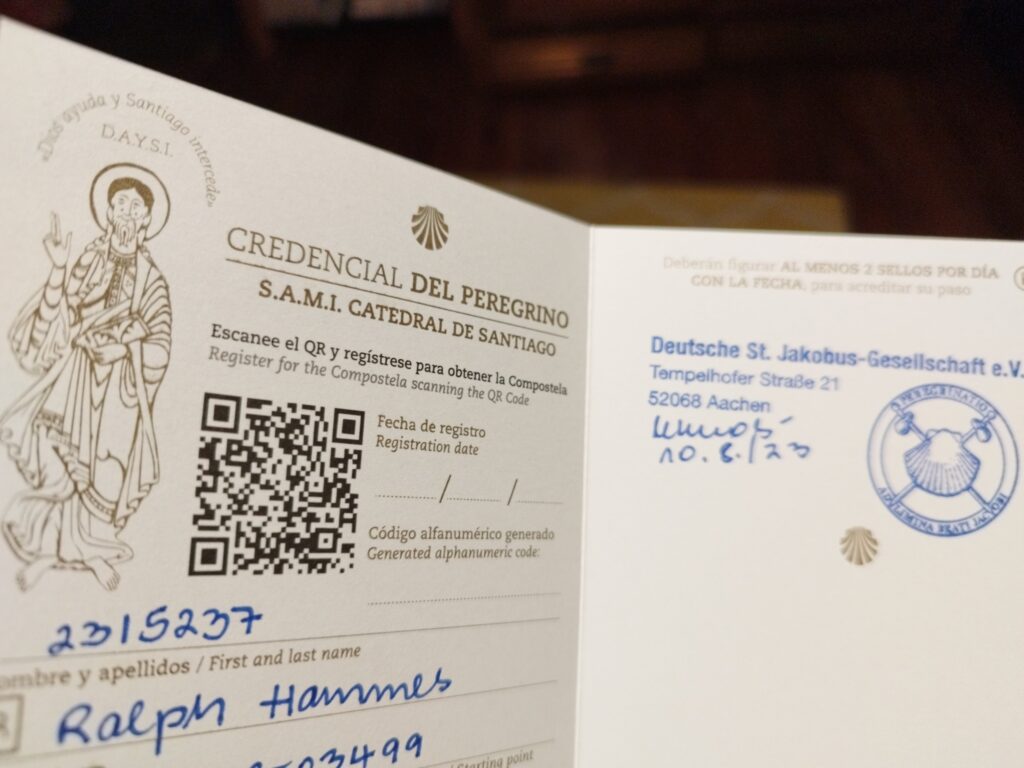 «Dios ayuda y Santiago intercede»
D.A.Y.S.I.
CREDENCIAL DEL PEREGRINO
S.A.M.I. CATEDRAL DE SANTIAGO
Escanee el QR y regístrese para obtener la Compostela
Register for the Compostela scanning the QR Code
Fecha de registro
Registration date
/ /
Código alfanumérico generado
Generated alphanumeric code:
2315237
ombre y apellidos / First and last name
Ralph Hammes
03499
/ Starting point
Deberán figurar AL MENOS 2 SELLOS POR DÍA
CON LA FECHA, para acreditar su paso
Deutsche St. Jakobus-Gesellschaft e.V.
Tempelhofer Straße 21
52068 Aachen
10.8./23
PEREGRINATIO
AD LIMINA BEATI JACOBI